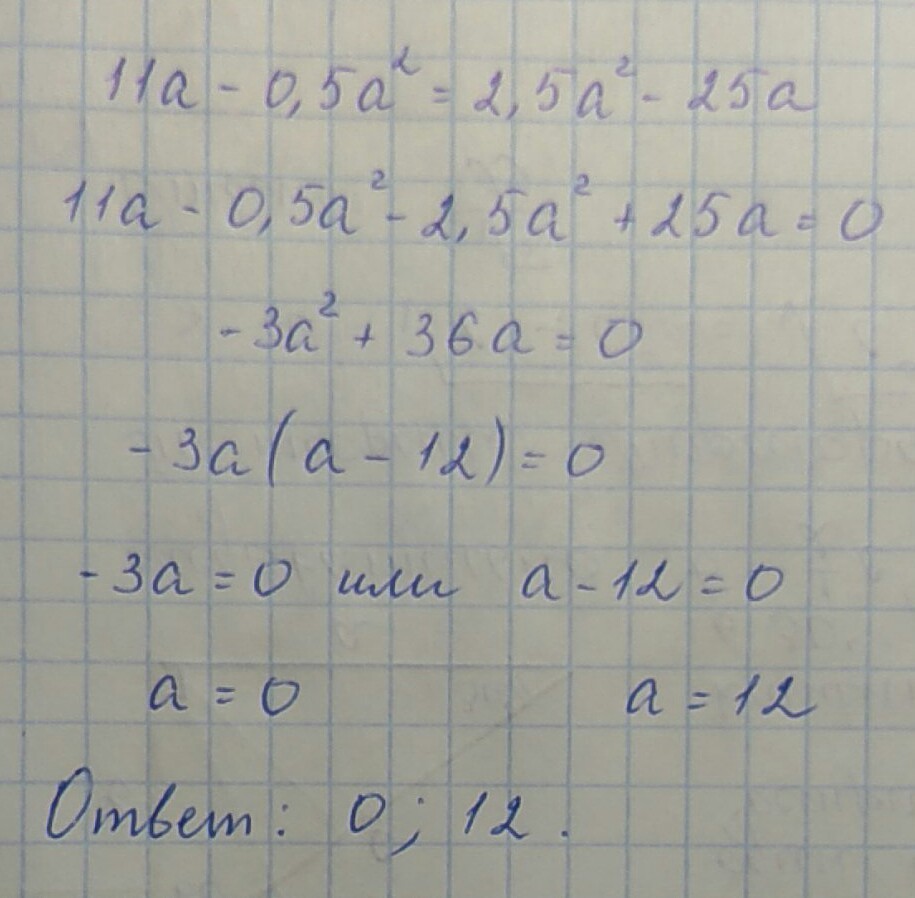 11a - 0,5a² = 2,5a² - 25a
11a - 0,5a² - 2,5a² + 25a = 0
-3a² + 36a = 0
-3a(a - 12) = 0
-3a = 0 или a - 12 = 0
a = 0 a = 12
Ответ: 0; 12.